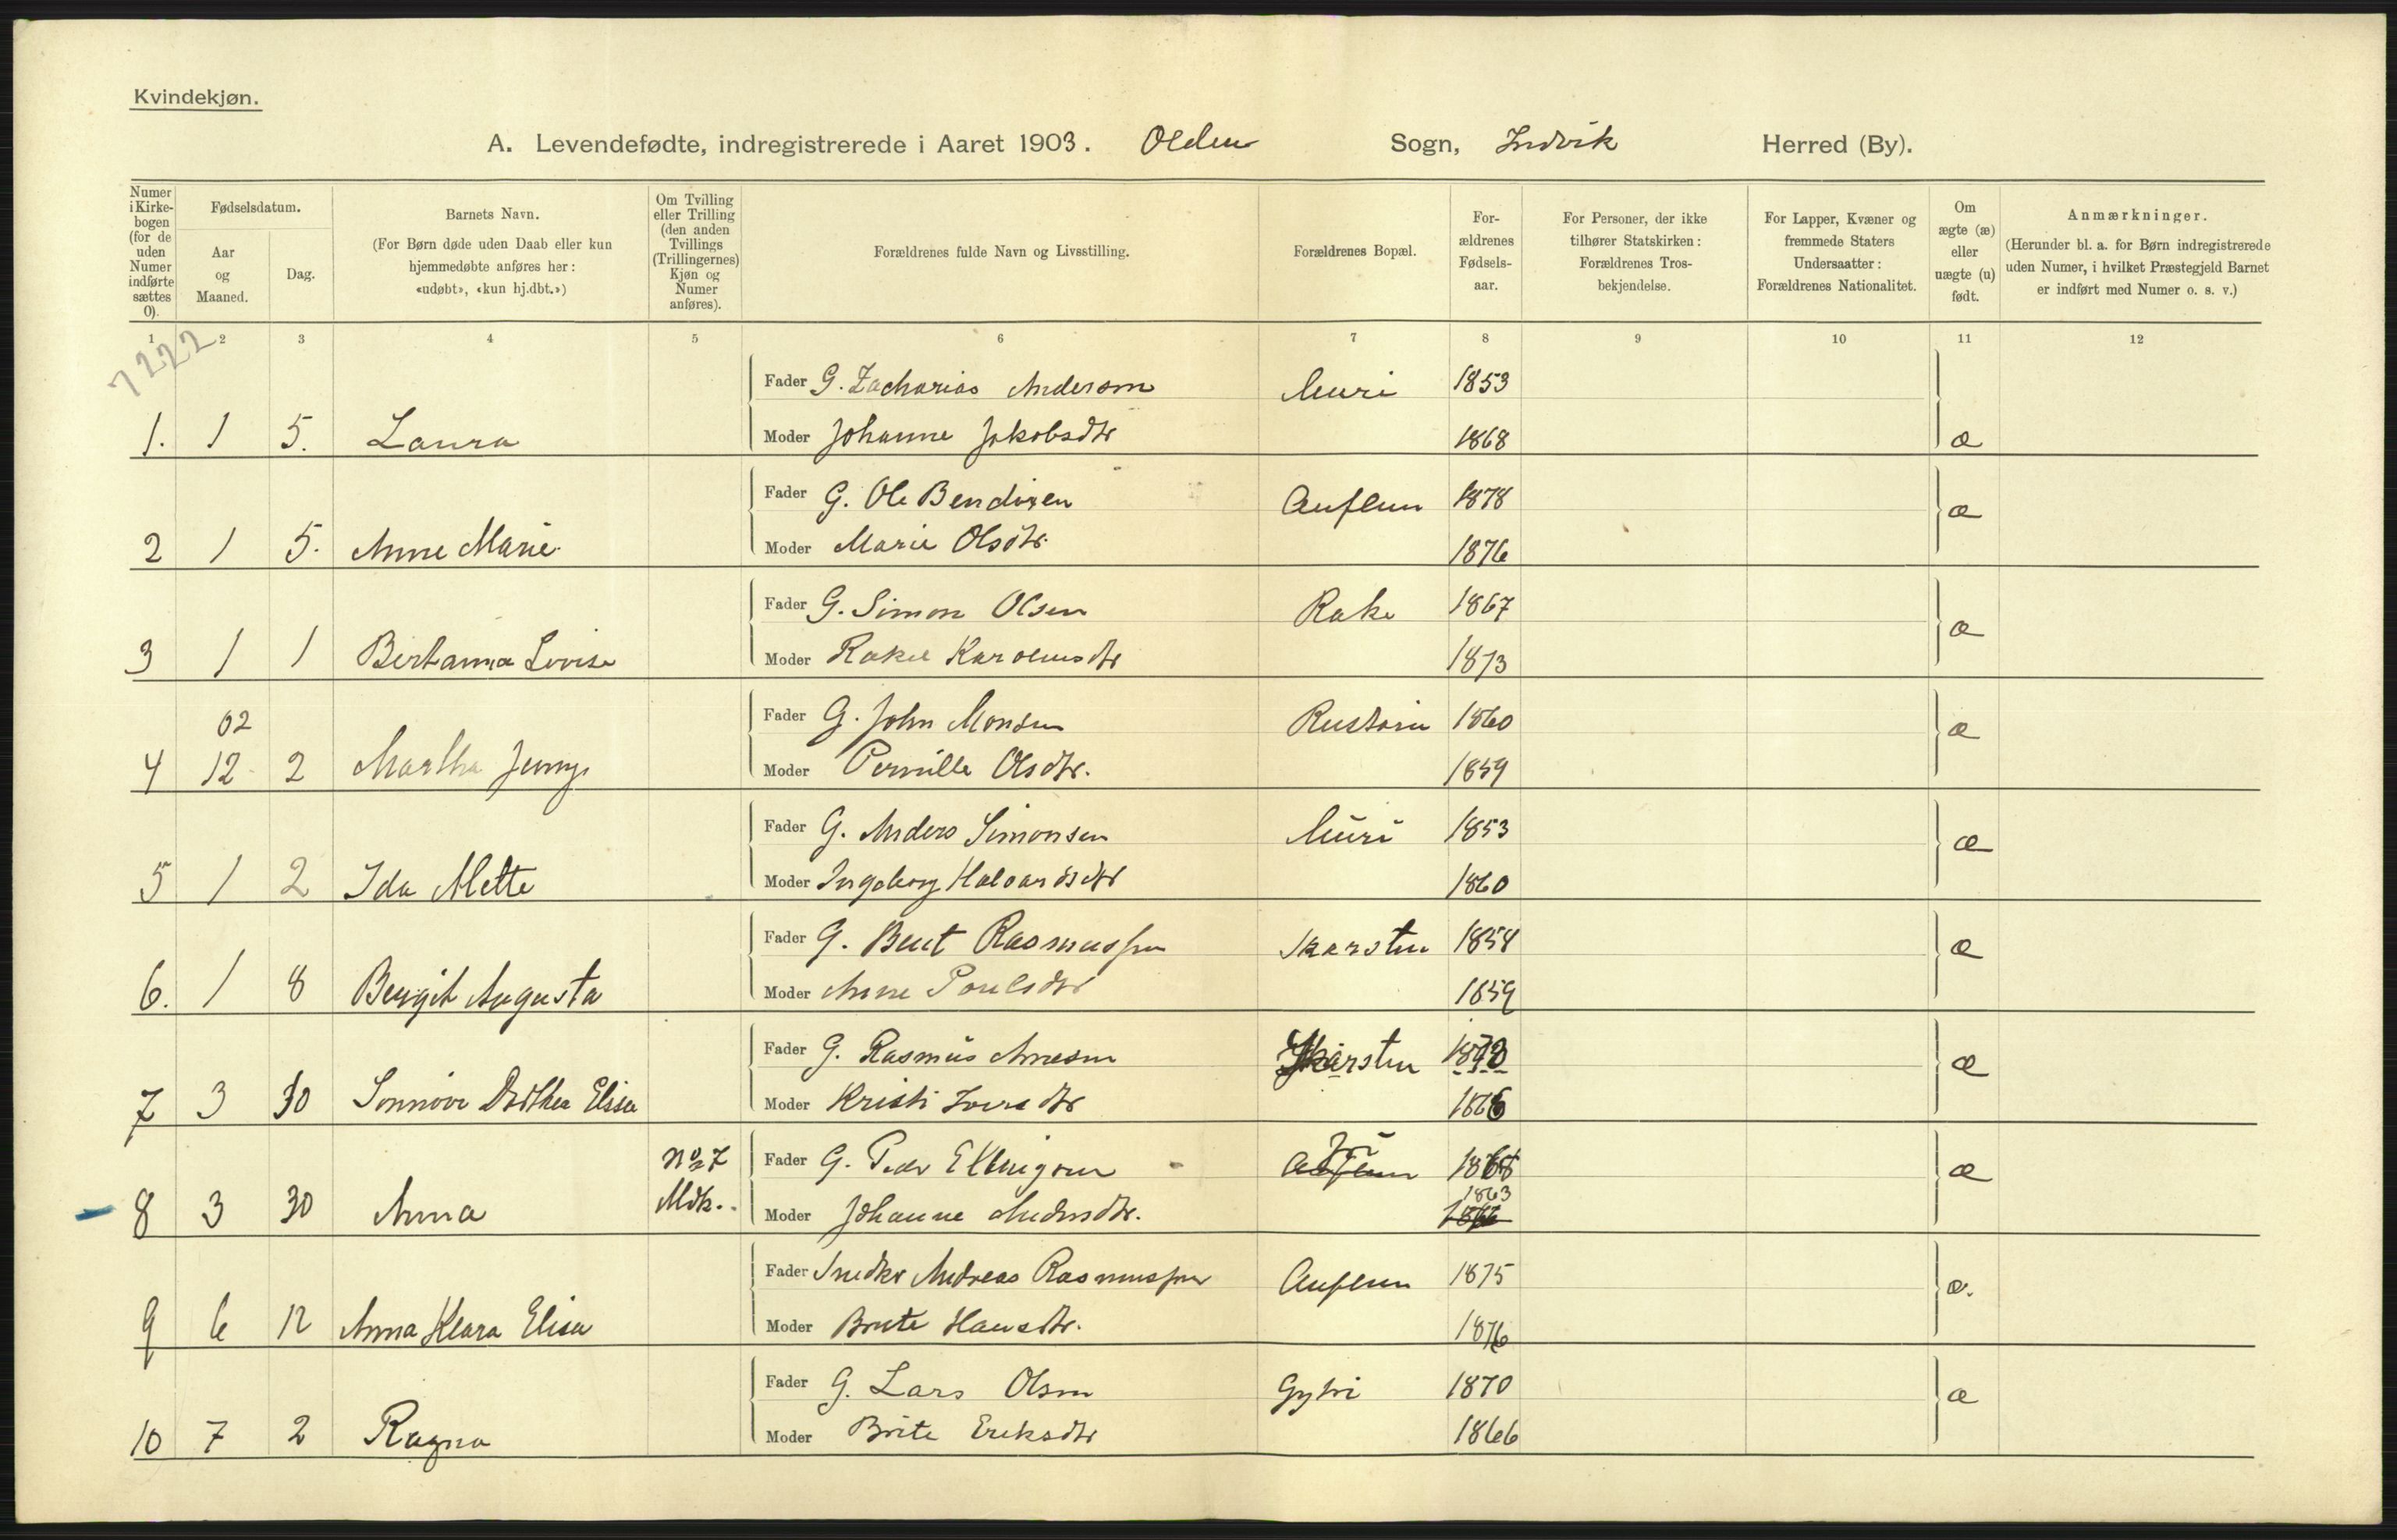 Kvindekjøn.
A. Levendefødte, indregistrerede i Aaret 1903. Olden Sogn, Indvik Herred (By).
Numer i Kirkebogen (for de uden Numer indførte sættes 0).
Fødselsdatum.
Aar og Maaned.
Dag.
Barnets Navn.
(For Børn døde uden Daab eller kun hjemmedøbte anføres her: «udøbt», «kun hj.dbt.»)
Om Tvilling eller Trilling (den anden Tvillings (Trillingernes) Kjøn og Numer anføres).
Forældrenes fulde Navn og Livsstilling.
Forældrenes Bopæl.
Forældrenes Fødselsaar.
For Personer, der ikke tilhører Statskirken: Forældrenes Trosbekjendelse.
For Lapper, Kvæner og fremmede Staters Undersaatter: Forældrenes Nationalitet.
Om ægte (æ) eller uægte (u) født.
Anmærkninger.
(Herunder bl. a. for Børn indregistrerede uden Numer, i hvilket Præstegjeld Barnet er indført med Numer o. s. v.)
1 2 3 4 5 6 7 8 9 10 11 12
7222
Fader G. Zacharias Anderson Muri 1853
1. 1 5. Laura Moder Johanne Jakobsdtr 1868 æ
Fader G. Ole Bendixen Auflem 1878 æ
2 1 5. Anne Marie Moder Marie Olsdtr. 1876
Fader G. Simon Olsen Rake 1867 æ
3 1 1 Bertanna Lovise Moder Rakel Karolusdtr 1873
02 Fader G. John Monsen Rustøen 1860 æ
4 12 2 Martha Jenny Moder Pernille Olsdtr. 1859
Fader G. Anders Simonsen Muri 1853 æ
5 1 2 Ida Mette Moder Ingeborg Halvardsdtr 1860
Fader G. Bent Rasmussen Skarsten 1858 æ
6. 1 8 Bergit Augusta Moder Anne Poulsdtr 1859
Fader G. Rasmus Arnesen Skarsten æ
7 3 30 Synnøve Dorthea Elisa Moder Kristi Iversdtr 1866
No 7 Fader G. Peder Ellingsen æ
8 3 30 Anna Mdk. Moder Johanne Andersdtr. 1863
Fader Snedker Andreas Rasmussen Auflem 1875 æ.
9 6 12 Anna Klara Elisa Moder Brite Hansdtr. 1876
Fader G. Lars Olsen Gytri 1870 æ
10 7 2 Ragna Moder Brite Eriksdtr 1866